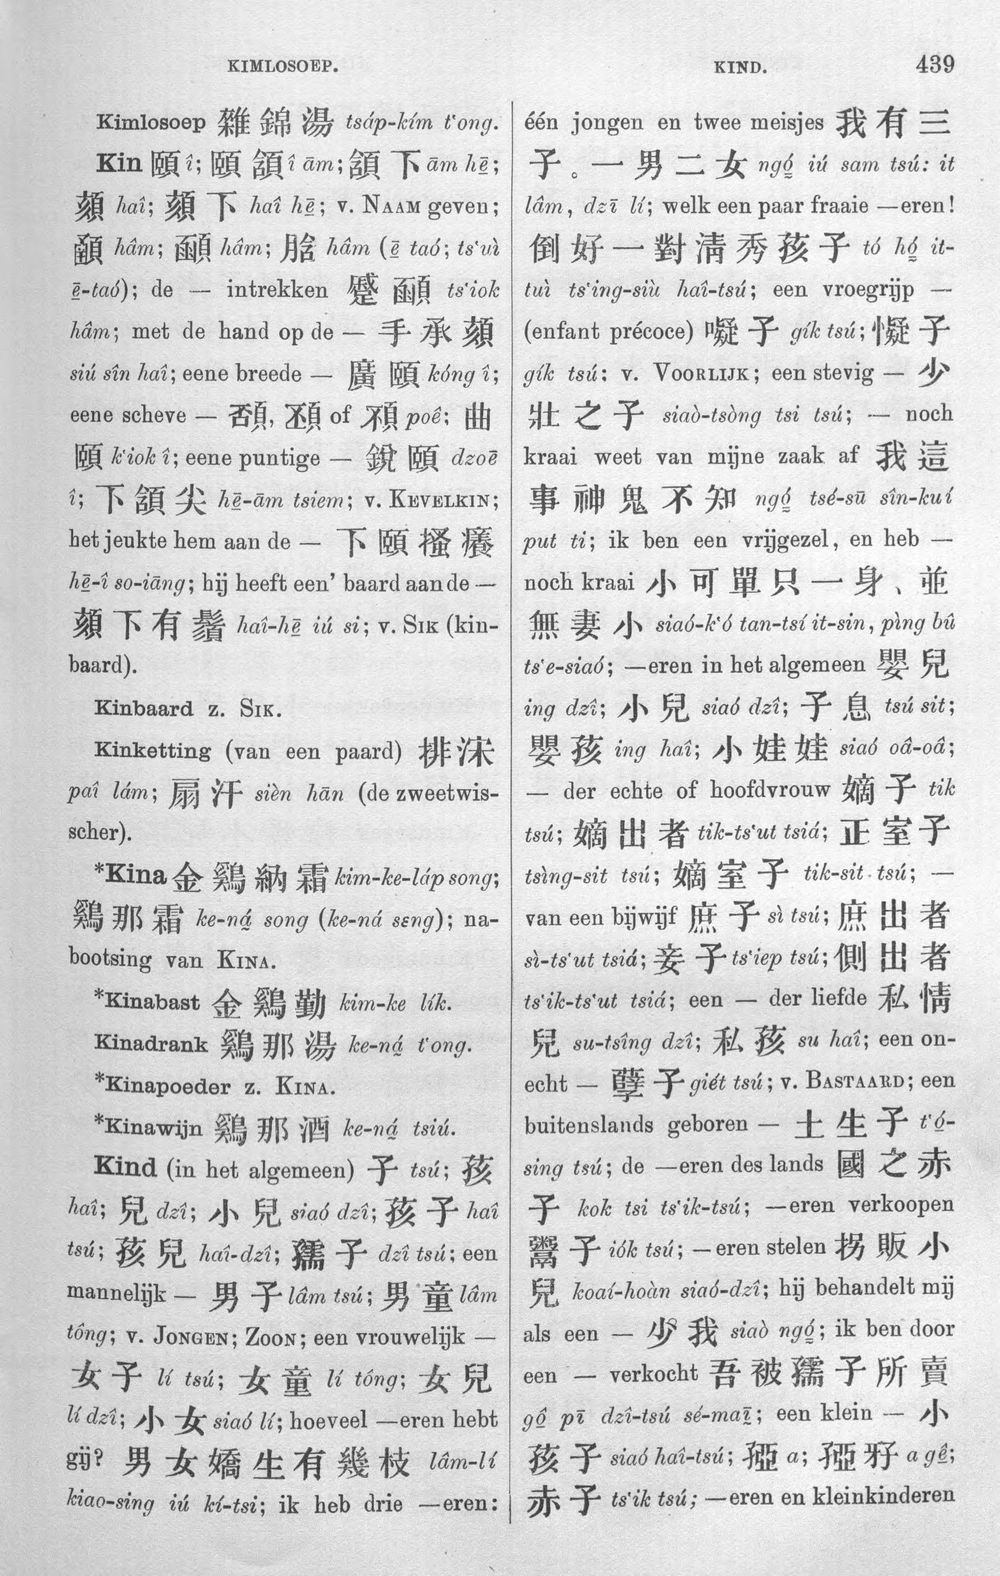 KIMLOSOEP.
KIND.
439
Kimlosoep 雜錦湯 tsáp-kím t‘ong.
Kin 頤 î; 頤頷 î ām; 頷下 ām hē̱;
頦 haî; 頦下 haî hē̱; v. NAAM geven;
hâm; hâm; hâm (ē̱ taó; ts‘uì
ē̱-taó); de — intrekken 蹙 ts‘iok
hâm; met de hand op de — 手承頦
siú sîn haî; eene breede — 廣頤 kóng î;
eene scheve — of poê; 曲
頤 k‘iok î; eene puntige — 銳頤 dzoē
î; 下頷尖 hē̱-ām tsiem; v. KEVELKIN;
het jeukte hem aan de — 下頤搔癢
hē̱-î so-iāng; hij heeft een’ baard aan de —
頦下有鬚 haî-hē̱ iú si; v. SIK (kin-
baard).
Kinbaard z. SIK.
Kinketting (van een paard) 排沫
paî lám; 扇汗 sièn hān (de zweetwis-
scher).
*Kina 金鷄納霜 kim-ke-láp song;
鷄那霜 ke-ná̱ song (ke-ná sɛng); na-
bootsing van KINA.
*Kinabast 金鷄勒 kim-ke lík.
Kinadrank 鷄那湯 ke-ná̱ t‘ong.
*Kinapoeder z. KINA.
*Kinawijn 鷄那酒 ke-ná̱ tsiú.
Kind (in het algemeen) 子 tsú; 孩
haî; 兒 dzî; 小兒 siaó dzî; 孩子 haî
tsú; 孩兒 haî-dzî; 孺子 dzî tsú; een
mannelijk — 男子 lâm tsú; 男童 lâm
tông; v. JONGEN; ZOON; een vrouwelijk —
女子 lí tsú; 女童 lí tông; 女兒
lí dzî; 小女 siaó lí; hoeveel —eren hebt
gij? 男女嬌生有幾枝 lâm-lí
kiao-sing iú kí-tsi; ik heb drie —eren:
één jongen en twee meisjes 我有三
子。一男二女 ngó̱ iú sam tsú: it
lâm, dzī lí; welk een paar fraaie —eren!
倒好一對清秀孩子 tó hó̱ it-
tuì ts‘ing-siù haî-tsú; een vroegrijp —
(enfant précoce) 嶷子 gík tsú; 子
gík tsú; v. VOORLIJK; een stevig — 少
壯之子 siaò-tsòng tsi tsú; — noch
kraai weet van mijne zaak af 我這
事神鬼不知 ngó̱ tsé-sū sîn-kuí
put ti; ik ben een vrijgezel, en heb —
noch kraai 小可單只一身、並
無妻小 siaó-k‘ó tan-tsí it-sin, pìng bû
ts‘e-siaó; —eren in het algemeen 嬰兒
ing dzî; 小兒 siaó dzî; 子息 tsú sit;
嬰孩 ing haî; 小娃娃 siaó oâ-oâ;
— der echte of hoofdvrouw 嫡子 tik
tsú; 嫡出者 tik-ts‘ut tsiá; 正室子
tsìng-sit tsú; 嫡室子 tik-sit-tsú; —
van een bijwijf 庶子 sì tsú; 庶出者
sì-ts‘ut tsiá; 妾子 ts‘iep tsú; 側出者
ts‘ik-ts‘ut tsiá; een — der liefde 私情
兒 su-tsîng dzî; 私孩 su haî; een on-
echt — 孽子 giét tsú; v. BASTAARD; een
buitenslands geboren — 土生子 t‘ó̱-
sing tsú; de —eren des lands 國之赤
子 kok tsi ts‘ik-tsú; —eren verkoopen
鬻子 iók tsú; —eren stelen 拐販小
兒 koaí-hoàn siaó-dzî; hij behandelt mij
als een — 少我 siaò ngó̱; ik ben door
een — verkocht 吾被孺子所賣
gô̱ pī dzî-tsú sé-maī̱; een klein — 小
孩子 siaó haî-tsú; a; a gê̱;
赤子 ts‘ik tsú; —eren en kleinkinderen